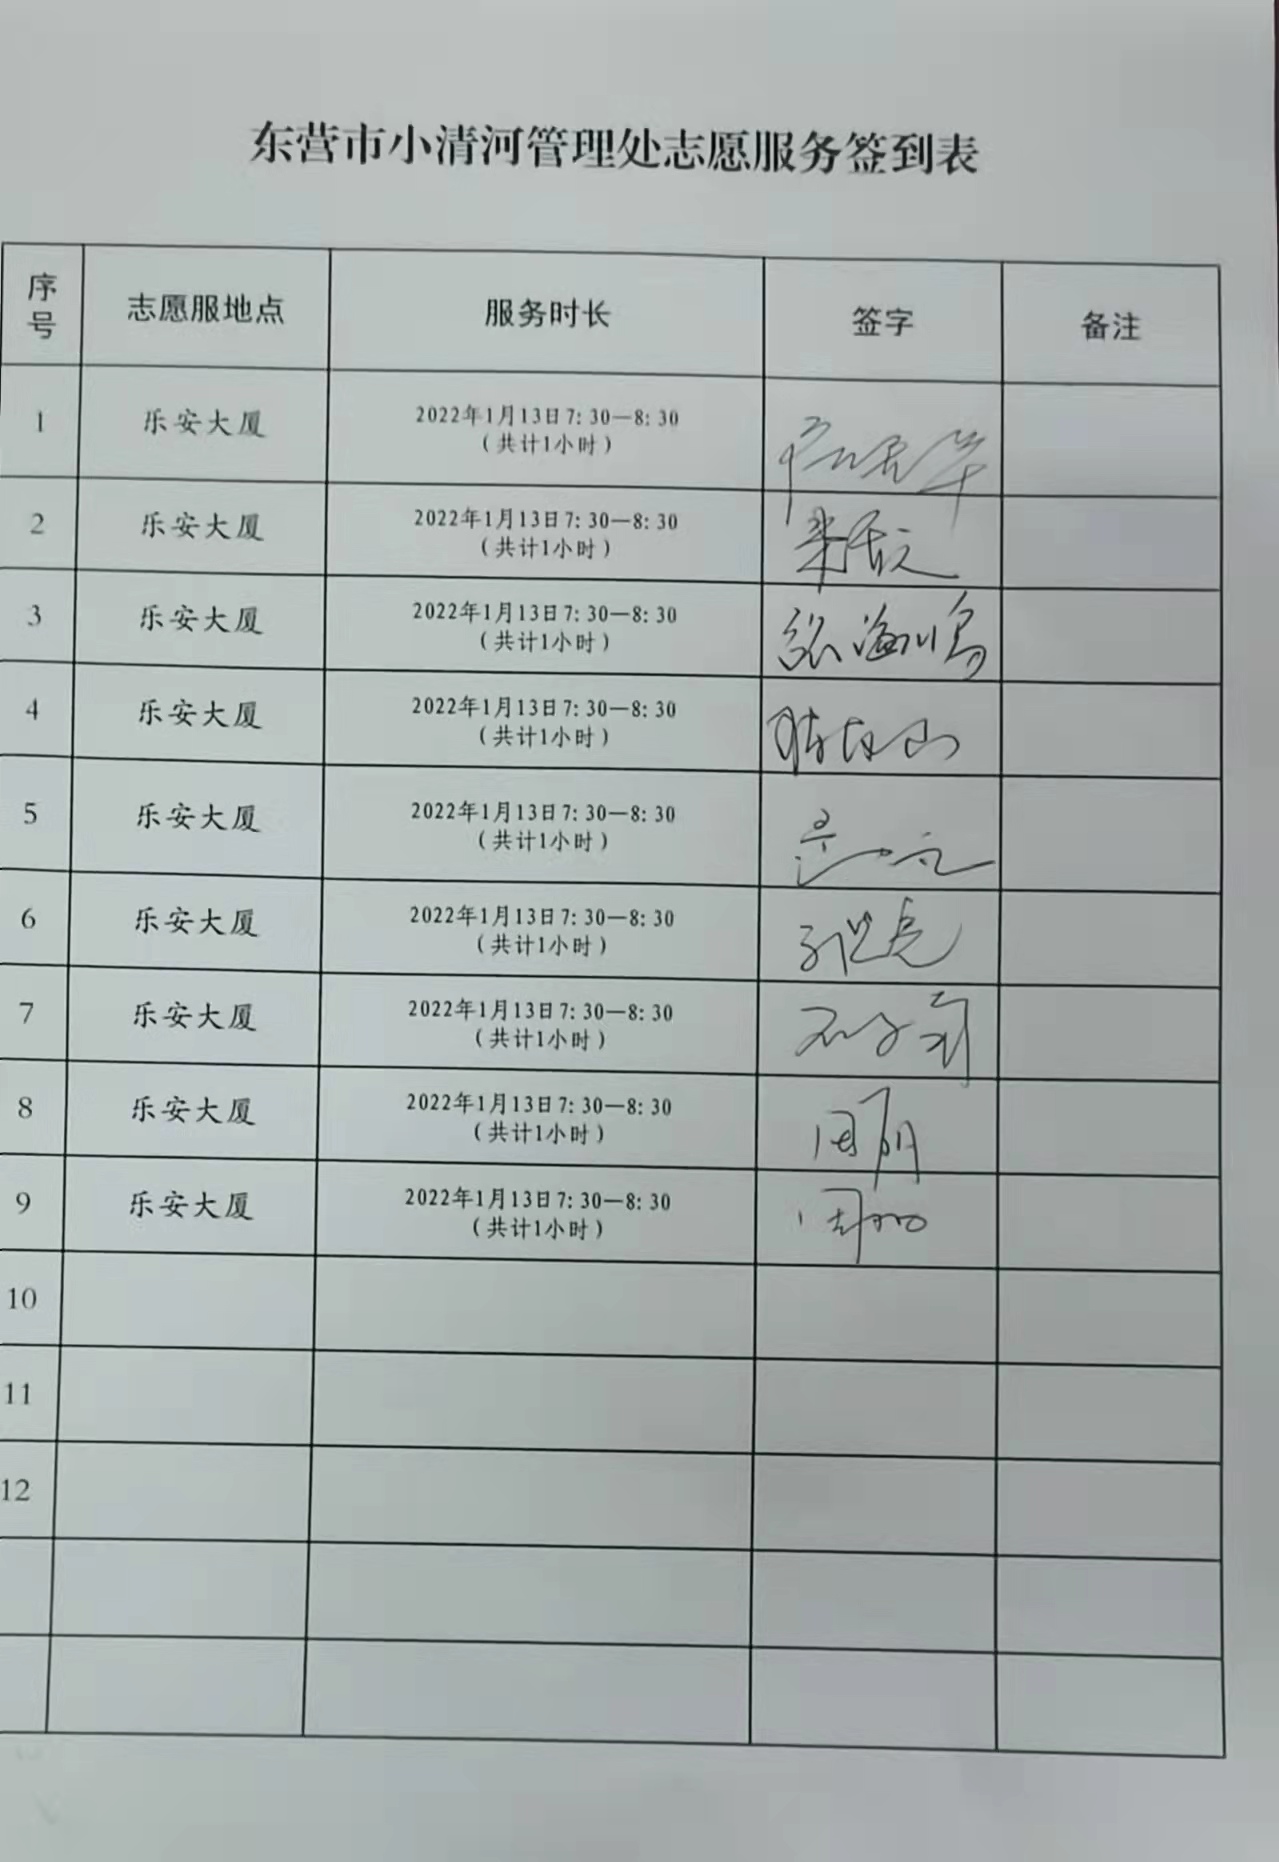 东营市小清河管理处志愿服务签到表
序号 志愿服地点 服务时长 签字 备注
1 乐安大厦 2022年1月13日7:30—8:30
(共计1小时)
2 乐安大厦 2022年1月13日7:30—8:30
(共计1小时)
3 乐安大厦 2022年1月13日7:30—8:30
(共计1小时)
4 乐安大厦 2022年1月13日7:30—8:30
(共计1小时)
5 乐安大厦 2022年1月13日7:30—8:30
(共计1小时)
6 乐安大厦 2022年1月13日7:30—8:30
(共计1小时)
7 乐安大厦 2022年1月13日7:30—8:30
(共计1小时)
8 乐安大厦 2022年1月13日7:30—8:30
(共计1小时) 周丽
9 乐安大厦 2022年1月13日7:30—8:30
(共计1小时)
10
11
12